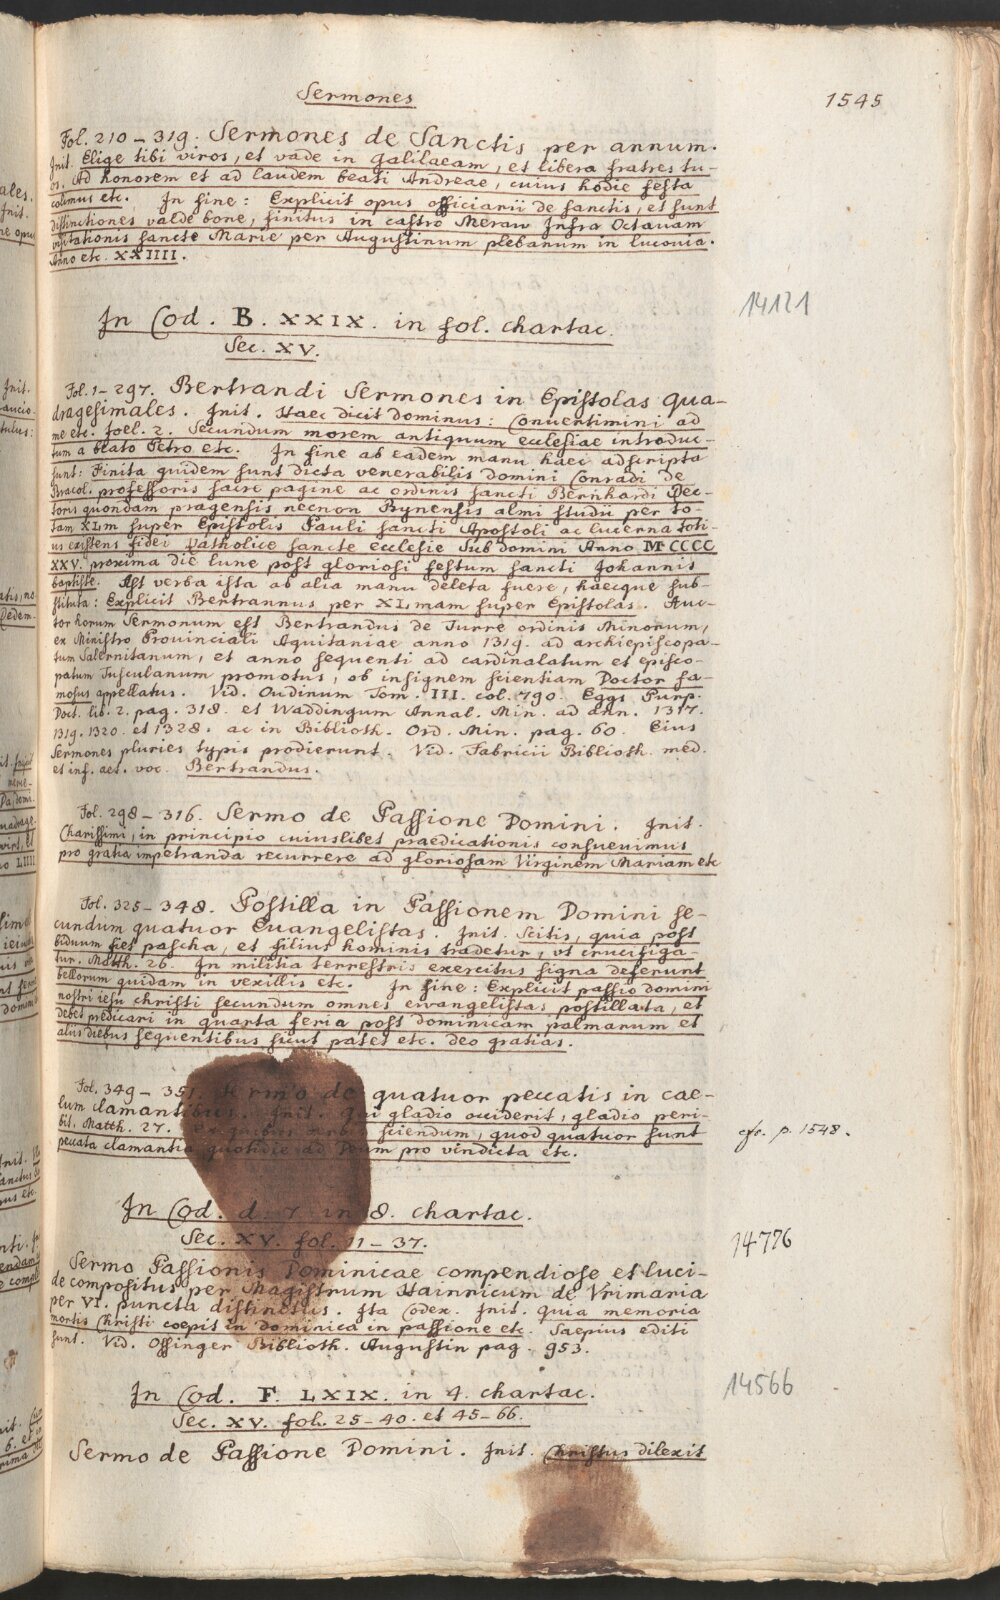 Sermones
1545
Fol. 210 – 319. Sermones de Sanctis per annum.
Init. Elige tibi viros, et vade in Galilaeam, et libera fratres tu-
os. Ad honorem et ad laudem beati Andreae, cuius hodie festa
colimus etc. In fine: Explicit opus officiarii de sanctis, et sunt
distinctiones valde bone, finitus in castro Meraw Infra Octauam
visitationis sancte Marie per Augustinum plebanum in luconia.
Anno etc. XXIIII.
14121
In Cod. B. XXIX. in fol. chartac.
Sec. XV.
Fol. 1– 297. Bertrandi Sermones in Epistolas qua-
dragesimales. Init. Haec dicit dominus: Conuertimini ad
me etc. Joel. 2. Secundum morem antiquum ecclesiae introduc-
tum a beato Petro etc. In fine ab eadem manu haec adscripta
sunt: Finita quidem sunt dicta venerabilis domini Conradi de
Bracol. professoris sacre pagine ac ordinis sancti Bernhardi Rec-
toris quondam pragensis necnon Rynensis almi studii per to-
tam XLm super Epistolis Pauli sancti Apostoli ac lucerna toti-
us existens fidei Katholice sancte ecclesie Sub domini Anno M CCCC
XXV. proxima die lune post gloriosi festum sancti Johannis
baptiste. Ast verba ista ab alia manu deleta fuere, haecque sub-
stituta: Explicit Bertrannus per XLmam super Epistolas. Auc-
tor horum Sermonum est Bertrandus de Turre ordinis Minorum,
ex Ministro Prouinciali Aquitaniae anno 1319. ad archiepiscopa-
tum Salernitanum, et anno sequenti ad cardinalatum et episco-
patum Tusculanum promotus, ob insignem scientiam Doctor fa-
mosus appellatus. Vid. Oudinum Tom. III. col. 790. Eggs Purp.
Doct. lib. 2. pag. 318. et Waddingum Annal. Min. ad ann. 1317.
1319. 1320. et 1328. ac in Biblioth. Ord. Min. pag. 60. Eius
Sermones pluries typis prodierunt. Vid. Fabricii Biblioth. med.
et inf. aet. voc. Bertrandus.
Fol. 298 – 316. Sermo de Passione Domini. Init.
Charissimi, in principio cuiuslibet praedicationis consueuimus
pro gratia impetranda recurrere ad gloriosam Virginem Mariam etc
Fol. 325– 348. Postilla in Passionem Domini se-
cundum quatuor Euangelistas. Init. Scitis, quia post
biduum fiet pascha, et filius hominis tradetur, vt crucifiga-
tur. Matth. 26. In militia terrestris exercitus signa deferunt
bellorum quidam in vexillis etc. In fine: Explicit passio domini
nostri iesu christi secundum omnes ewangelistas postillata, et
debet predicari in quarta feria post dominicam palmarum et
aliis diebus sequentibus sicut patet etc. deo gratias.
Fol. 349 – 351. Sermo de quatuor peccatis in cae-
lum clamantibus. Init. Qui gladio occiderit, gladio peri-
bit. Matth. 27. Ex quibus verbis sciendum, quod quatuor sunt
peccata clamantia quotidie ad Deum pro vindicta etc.
cfr. p. 1548.
In Cod. d. 7. in 8. chartac.
Sec. XV. fol. 11 – 37.
14776
Sermo Passionis Dominicae compendiose et luci-
de compositus per Magistrum Hainricum de Vrimaria
per VI. puncta distinctus. Ita Codex. Init. Quia memoria
mortis Christi coepit in dominica in passione etc. Saepius editi
sunt. Vid. Ossinger Biblioth. Augustin pag. 953.
In Cod. F. LXIX. in 4. chartac.
Sec. XV. fol. 25 – 40. et 45– 66.
14566
Sermo de Passione Domini. Init. Christus dilexit